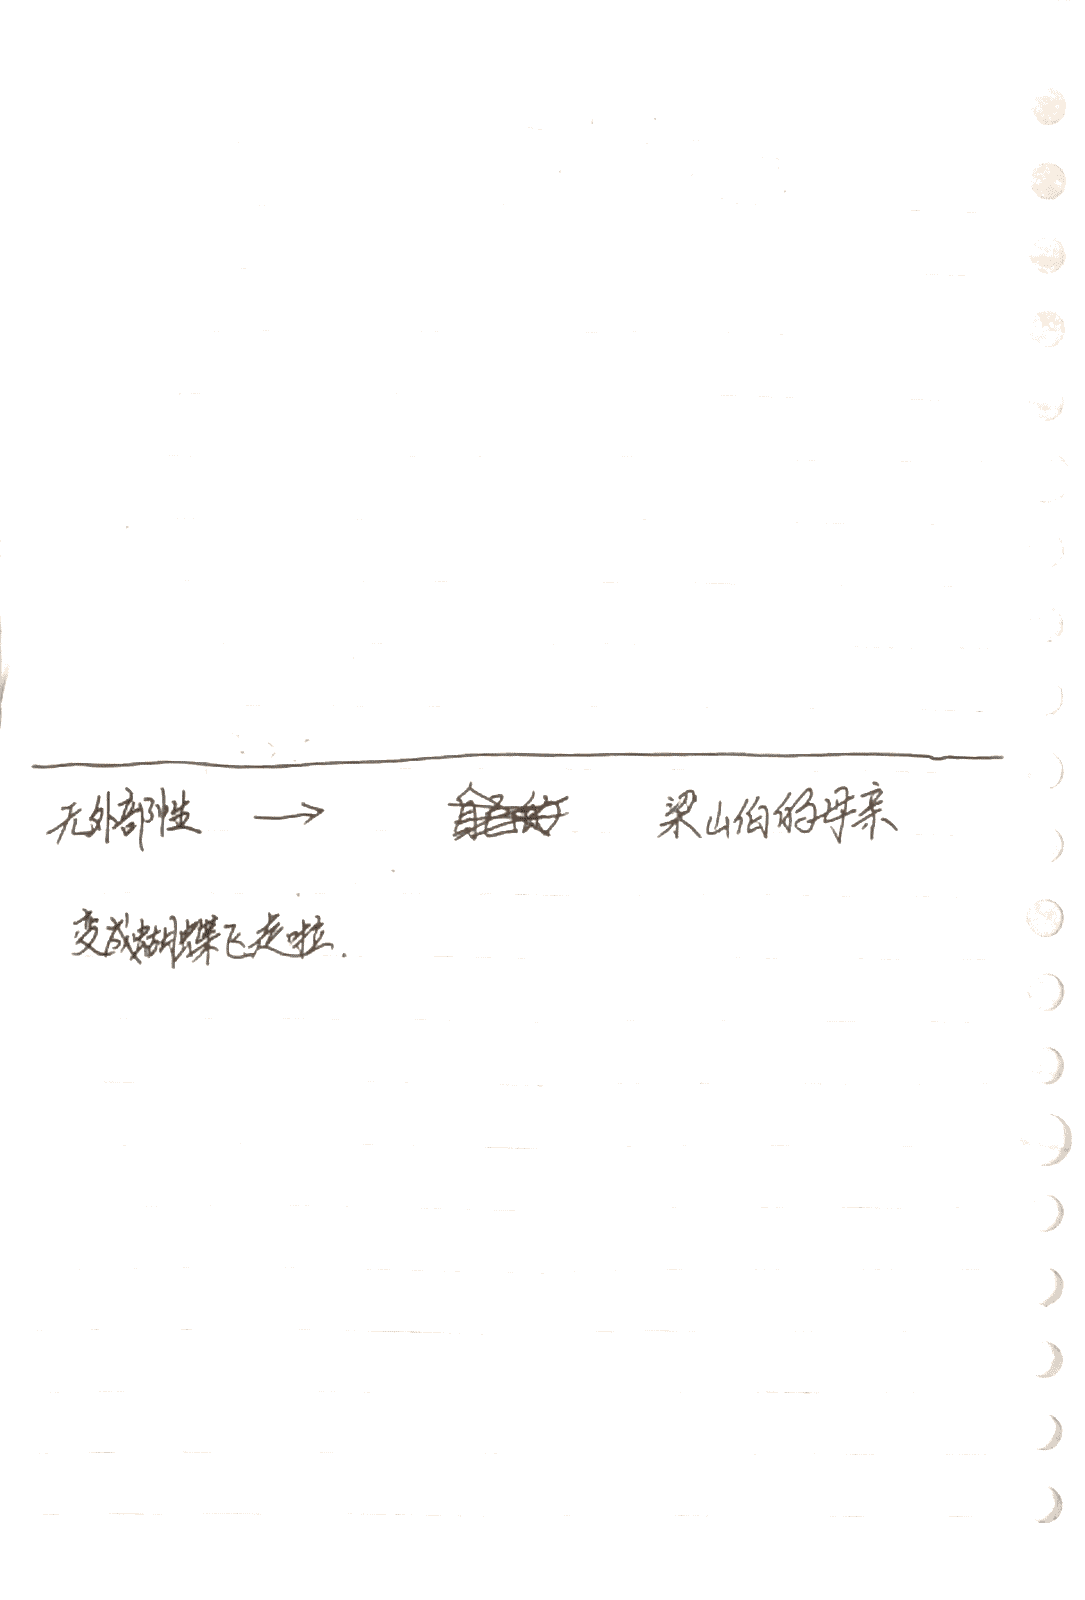 无外部性 → 梁山伯的母亲
变成蝴蝶飞走啦.